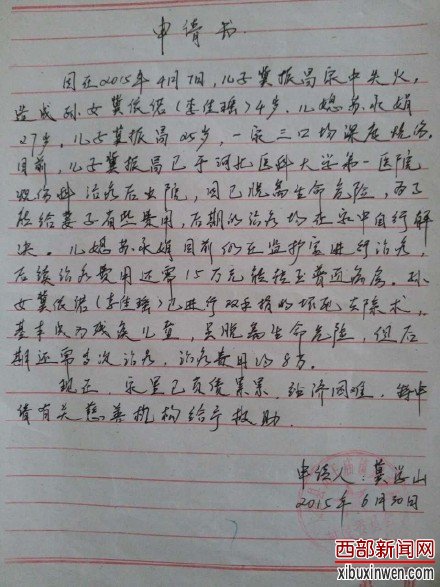 申请书.
因在2015年4月7日,儿子冀振昌家中失火,
造成孙女冀依偌(李佳瑶)4岁、儿媳苏永娟
27岁、儿子冀振昌25岁,一家三口均深度烧伤.
目前,儿子冀振昌已于河北医科大学第一医院
烧伤科治疗后出院,因已脱离生命危险,为了
能给妻子有些费用,后期的治疗均在家中自行解
决。儿媳苏永娟目前仍在监护室进行治疗,
后续治疗费用还需15万元转至普通病房。孙
女冀依偌(李佳瑶)已进行双手指的坏死去除术,
基本成为残疾儿童,虽脱离生命危险,但后
期还需多次治疗,治疗费用约8万。
现在,家里已负债累累,经济困难,特申
请有关慈善机构给予救助.
申请人:冀
山
2015年6月30日
西部新闻网
xibuxinwen.com